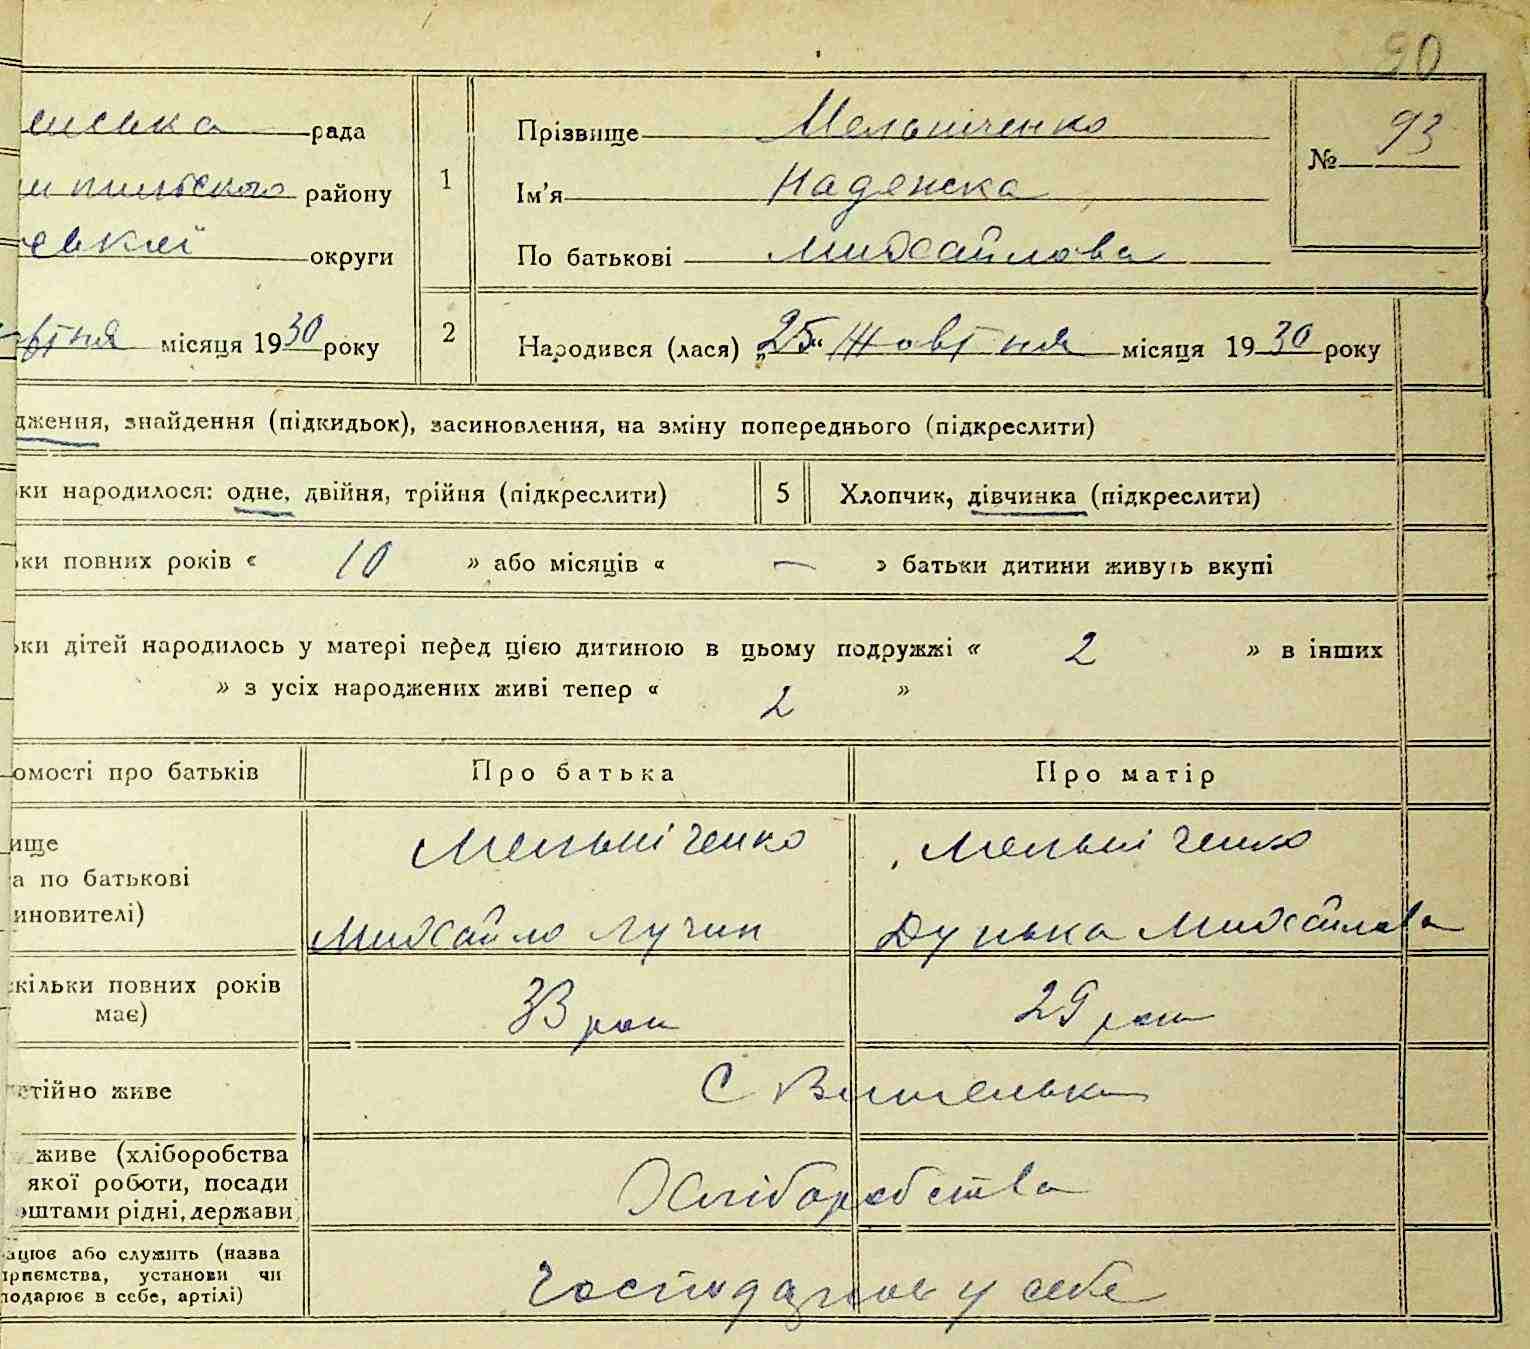 90
енська рада
пильського району
ської округи
овтня місяця 1930 року
1
Прізвище Мельниченко
Ім'я Надежка
По батькові Михайлова
№ 93
2
Народився (лася) „25“ Жовтня місяця 1930 року
дження, знайдення (підкидьок), засиновлення, на зміну попереднього (підкреслити)
ьки народилося: одне, двійня, трійня (підкреслити)
5
Хлопчик, дівчинка (підкреслити)
ьки повних років « 10 » або місяців « — » батьки дитини живуть вкупі
ьки дітей народилось у матері перед цією дитиною в цьому подружжі « 2 » в інших
» з усіх народжених живі тепер « 2 »
омості про батьків
Про батька
Про матір
ище
а по батькові
иновителі)
Мельніченко
Михайло Лучин
Мельніченко
Дунька Михайлова
скільки повних років
має)
33 роки
29 роки
стійно живе
С
живе (хліборобства
якої роботи, посади
оштами рідні, держави
Хліборобства
ацює або служить (назва
приємства, установи чи
подарює в себе, артілі)
у себе